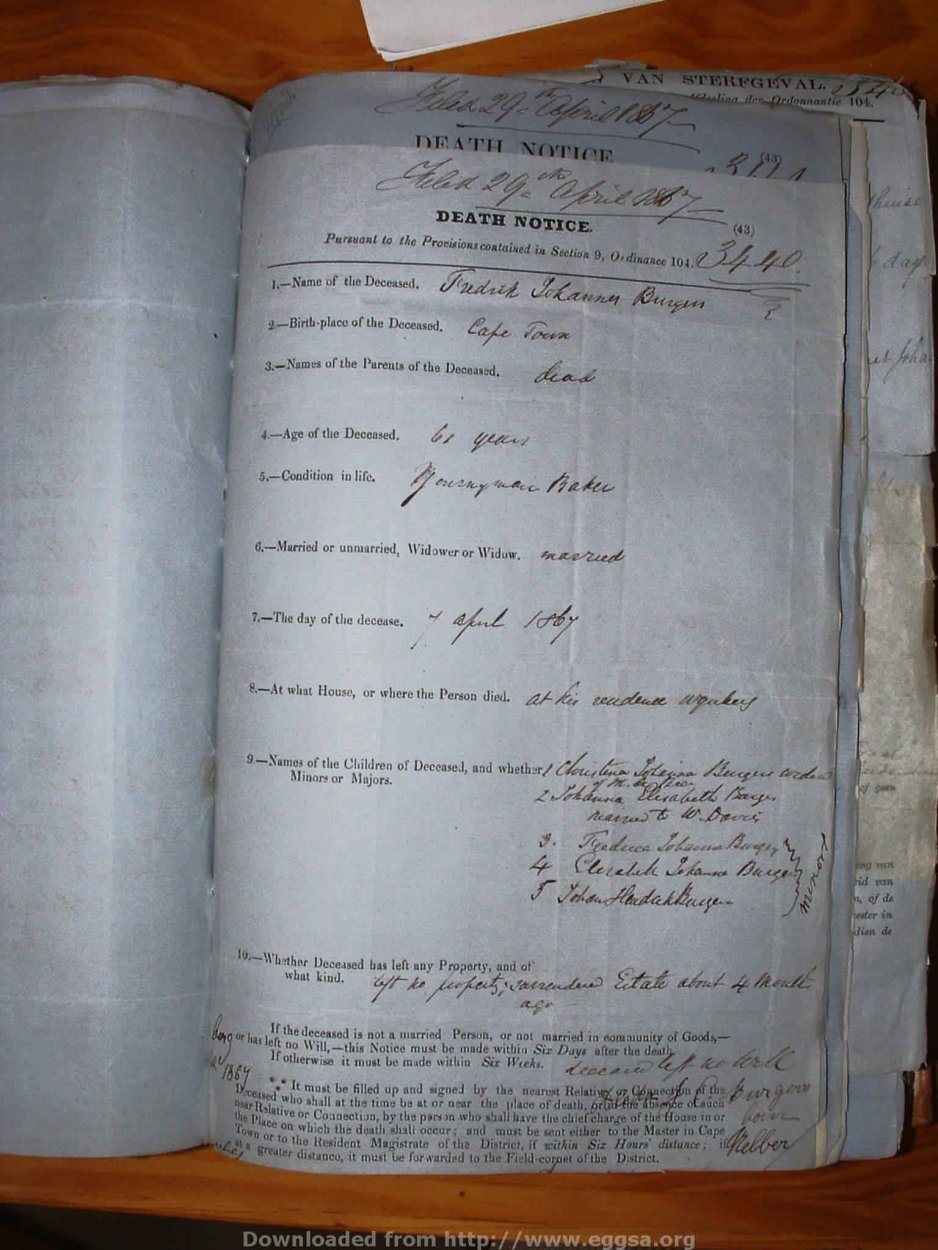 VAN STERFGEVAL.
der Ordonnantie 104.
Filed 29th April 1867
DEATH NOTICE
(43)
Filed 29th April 1867
DEATH NOTICE.
(43)
Pursuant to the Provisions contained in Section 9, Ordinance 104. 3440
1.—Name of the Deceased. Fredrik Johannes Burgers
2.—Birth-place of the Deceased. Cape Town
3.—Names of the Parents of the Deceased. dead
4.—Age of the Deceased. 61 years
5.—Condition in life. Journyman Baker
6.—Married or unmarried, Widower or Widow. married
7.—The day of the decease. 7 april 1867
8.—At what House, or where the Person died. at his residence wynberg
9.—Names of the Children of Deceased, and whether 1 Christina Johanna Burgers widow
Minors or Majors.
of M.
2 Johanna Elisabeth Burgers
married to W. Davis
3. Fredrica Johanna Burgers
4 Elizabeth Johanna Burgers
5 Johan Hendrik Burgers
minors
10.—Whether Deceased has left any Property, and of
what kind. left no property; surrendered Estate about 4 Month
ago
If the deceased is not a married Person, or not married in community of Goods,—
or has left no Will,—this Notice must be made within Six Days after the death.
If otherwise it must be made within Six Weeks. deceased left no Will
berg
1867
*** It must be filled up and signed by the nearest Relative or Connection of the
Deceased who shall at the time be at or near the place of death, or in the absence of such
near Relative or Connection, by the person who shall have the chief charge of the House in or
the Place on which the death shall occur; and must be sent either to the Master in Cape
Town or to the Resident Magistrate of the District, if within Six Hours' distance; if
at a greater distance, it must be forwarded to the Field-cornet of the District.
Burgers
born
Kelber
6 dage
of geen
eid van
n, of de
ester in
dien de
Downloaded from http://www.eggsa.org